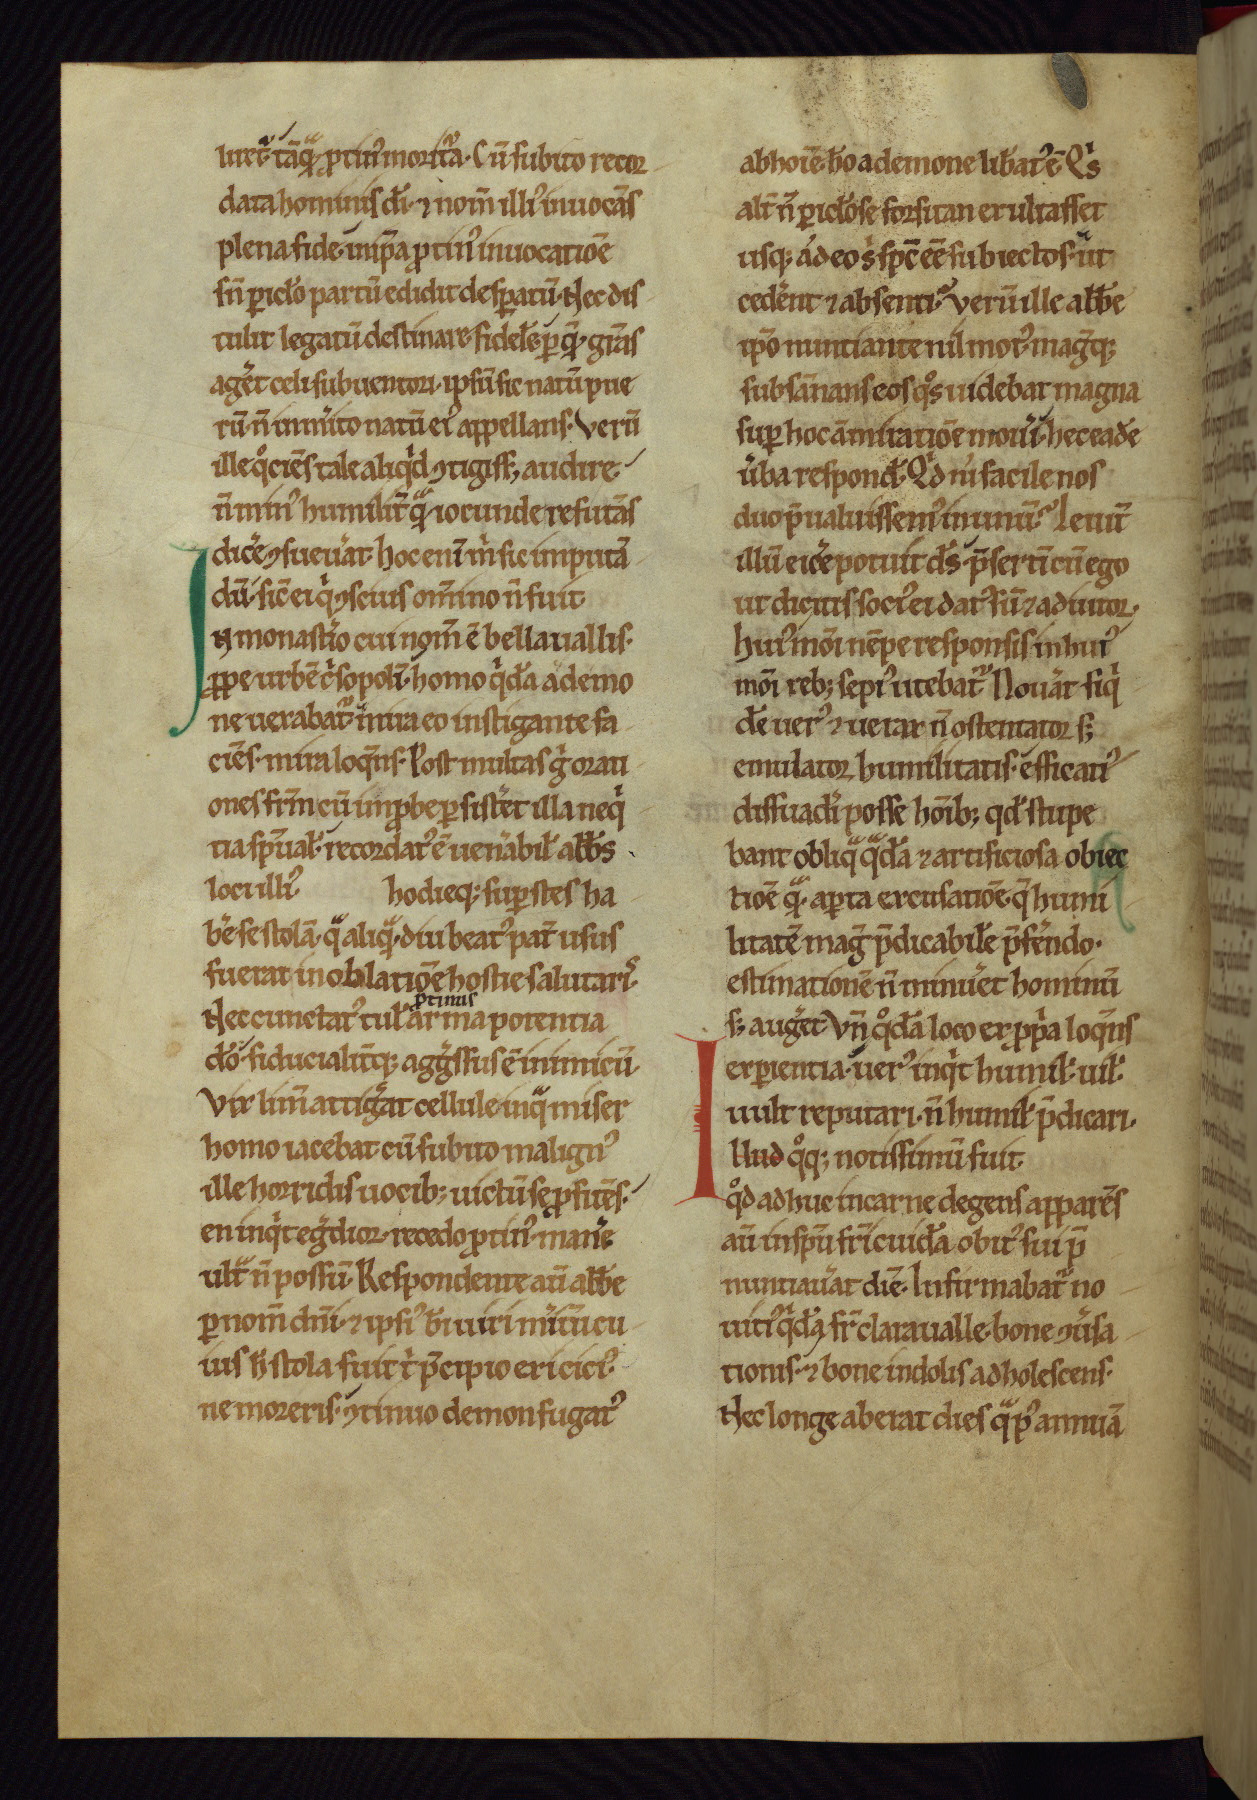 luret᷑ tāq̄ᵃ ꝓtin᷒ morit᷑a. Cū subito recor
data hominis dī. ⁊ nom̄ illi᷒ inuocās
plena fide. inip̄a ꝓtin᷒ inuocatiōe
sn̄ ꝑicło partū edidit desꝑatū. Nec dis
tulit legatū destinare. fidełe. ꝑ q̄. gr̄as
ag᷑et celi subuentori. ip̄sū sic natū pue
rū. n̄ inm᷑ito natū ei᷒ appellans. Verū
ille qͦciēs tale aliqͥd ꝯtigiss; audire.
n̄ min᷒ humilit᷑ qᵃ iocunde refutās
dic᷑e ꝯsueu᷑at. hoc eni m̄ sic imputā
dū. sic̄ ei qͥ ꝯscius om̄ino n̄ fuit.
In monast᷑io cui nom̄ ē bellauallis.
ꝓpe urbē cͥsopolī. homo qͥdā a demo
ne uexabat᷑. mira eo instigante fa
ciēs. mira loq̄ns. Post multas gͦ orati
ones fr̄m cū inꝓbe ꝑsist᷑et illa neqͥ
tia sp̄uał. recordat᷒ ē uen᷑abił abb̄s
loci illi᷒ hodieq; suꝑstes ha
b᷑e se stolā. qᵃ aliqᵃ. diu beat᷒ pat᷑ usus
fuerat in oblatiōe hostie salutaris.
ꝓtinus
Nec cunctat᷒ tuł arma potentia
dō. fiducialit᷑q; agg᷑ssus ē inimicū.
Vix lim̄ attig᷑at cellule inqᵃ miser
homo iacebat cū subito malign᷒
ille horridis uocib; uictū se ꝓfitēs.
en inqͥt eg᷑dior. recedo ꝓtin᷒. man᷑e
ult᷑ᵃ n̄ possū. Respondente aū abb̄e
ꝑ nom̄ dn̄i. ⁊ ipsi᷒ b̄i uiri m᷑itū cu
ius h̄ stola fuit t̄ p̄cipio exi cici᷒.
ne moreris. ꝯtinuo demon fugat᷒
ab hoīe. hō a demone lib᷑at᷒ ē. Qͥs
alt᷑ n̄ ꝑicłose forsitan exultasset
usq; adeo s᷑ sp̄c eē subiectos. ut
ced᷑ent ⁊ absenti. Verū ille abb̄e
ip̄o nuntiante nil mot᷒. mag᷑q;
subsānans eos qͦs uidebat magna
suꝑ hoc āmiratiōe mou᷑i. hec eadē
u᷑ba respond᷑. Qͥd ni facile nos
duo p̄ualuissem᷒ in unū. Leuit᷑
illū eic᷑e potuit ds̄. p̄sertī cū ego
ut dicitis soci᷒ ei dat᷒ sū ⁊ adiutor.
Hui᷒ mōi nēpe responsis in hui᷒
mōi reb; sepi᷒ utebat᷑. Nou᷑at siqͥ
dē uer᷒ ⁊ uerax n̄ ostentator s;
emulator humilitatis. efficaci᷒
dissuad᷑i posse hōib; qd᷑ stupe
bant obliqᵃ qᵃdā ⁊ artificiosa obiec
tiōe qᵃ. aꝑta excusatiōe. q̄ humi
litatē mag᷑ p̄dicabilē p̄f᷑endo.
estimationē n̄ minu᷑et hominū
s; aug᷑et. Vn̄ qͦdā loco ex ꝓp̄a loq̄ns
exꝑientia. uer᷒ inqͥt humił. uił
uult reputari. n̄ humił p̄dicari.
Illud qͦq; notissimū fuit.
qͦd adhuc in carne degens apparēs
aū in sp̄u fr̄i cuidā. obit᷒ sui p̄
nuntiau᷑at diē. Infirmabat᷑ no
uiti᷒ qͥdā fr̄ claraualle. bone ꝯu᷑sa
tionis. ⁊ bone indolis adholescens.
Nec longe aberat dies qᵃ p᷒ annuā